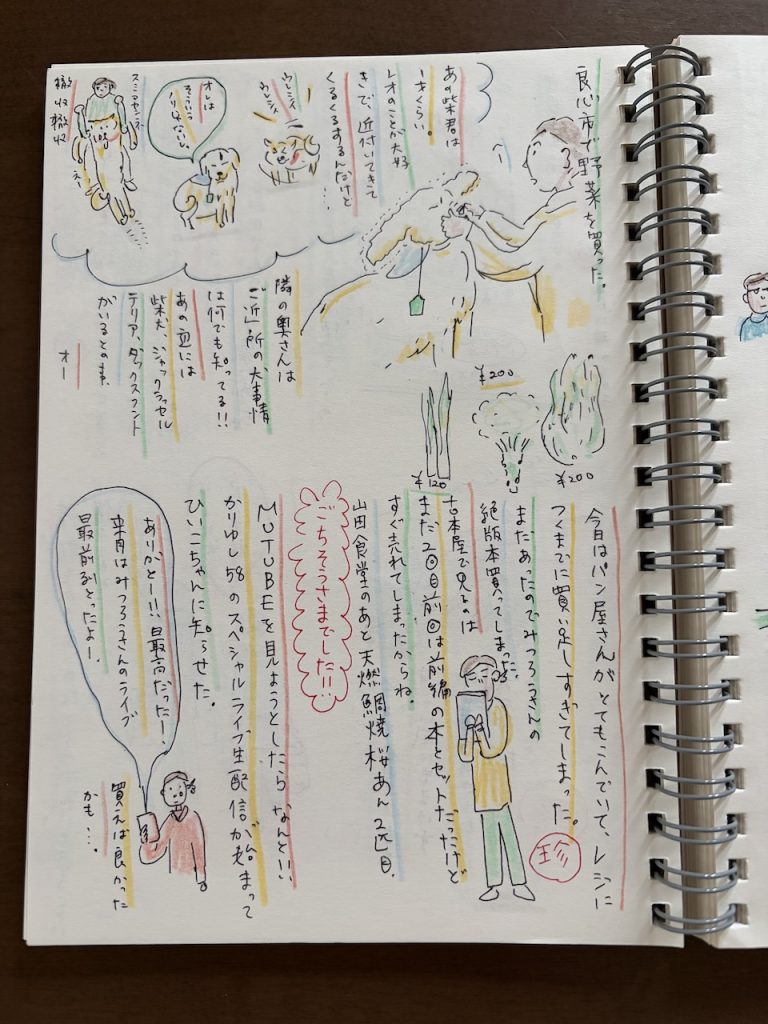 良心市で野菜を買った。
あの柴君は
一才くらい。
レオのことが大好
きで、近付いてきて
くるくるするんだけど
ウレシイ
ウレシイ
オレは
撤収撤収
隣の奥さんは
ご近所の大事情
は何でも知ってる!!
あの
には
柴犬、ジャックラッセル
テリア、ダックスフント
がいるとの事。
オー
¥200
¥200
¥120
今日はパン屋さんがとてもこんでいて、レジに
つくまでに買い足しすぎてしまった。
珍
まだあったのでみつろうさんの
絶版本買ってしまった。
古本屋で見るのは
まだ2回目前回は前編の本とセットだったけど
すぐ売れてしまったからね。
山田食堂のあと天燃鯛焼桜あん2匹目。
ごちそうさまでした!!
MUTUBEを見ようとしたらなんと!!
かりゆし58のスペシャルライブ生配信が始まって
ひいこちゃんに知らせた。
ありがとー!!最高だったー!
来月はみつろうさんのライブ
最前列とったよー!
買えば良かった
かも…。